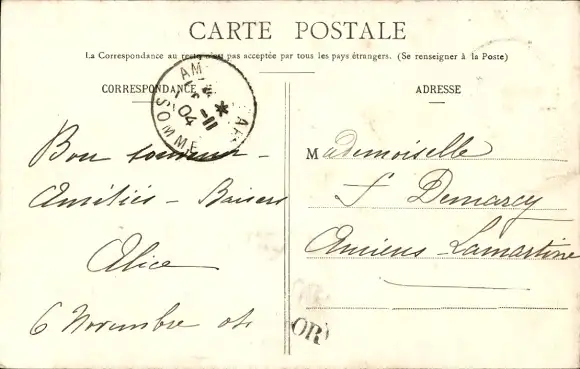 CARTE POSTALE
La Correspondance au recto n'est pas acceptée par tous les pays étrangers. (Se renseigner à la Poste)
CORRESPONDANCE
ADRESSE
AM
* 
-11
04
SOMME
Bon souvenir -
Amitiés - Baisers
Alice
6 Novembre 04
Mademoiselle
J Demarcy
Amiens Lamartine
OR